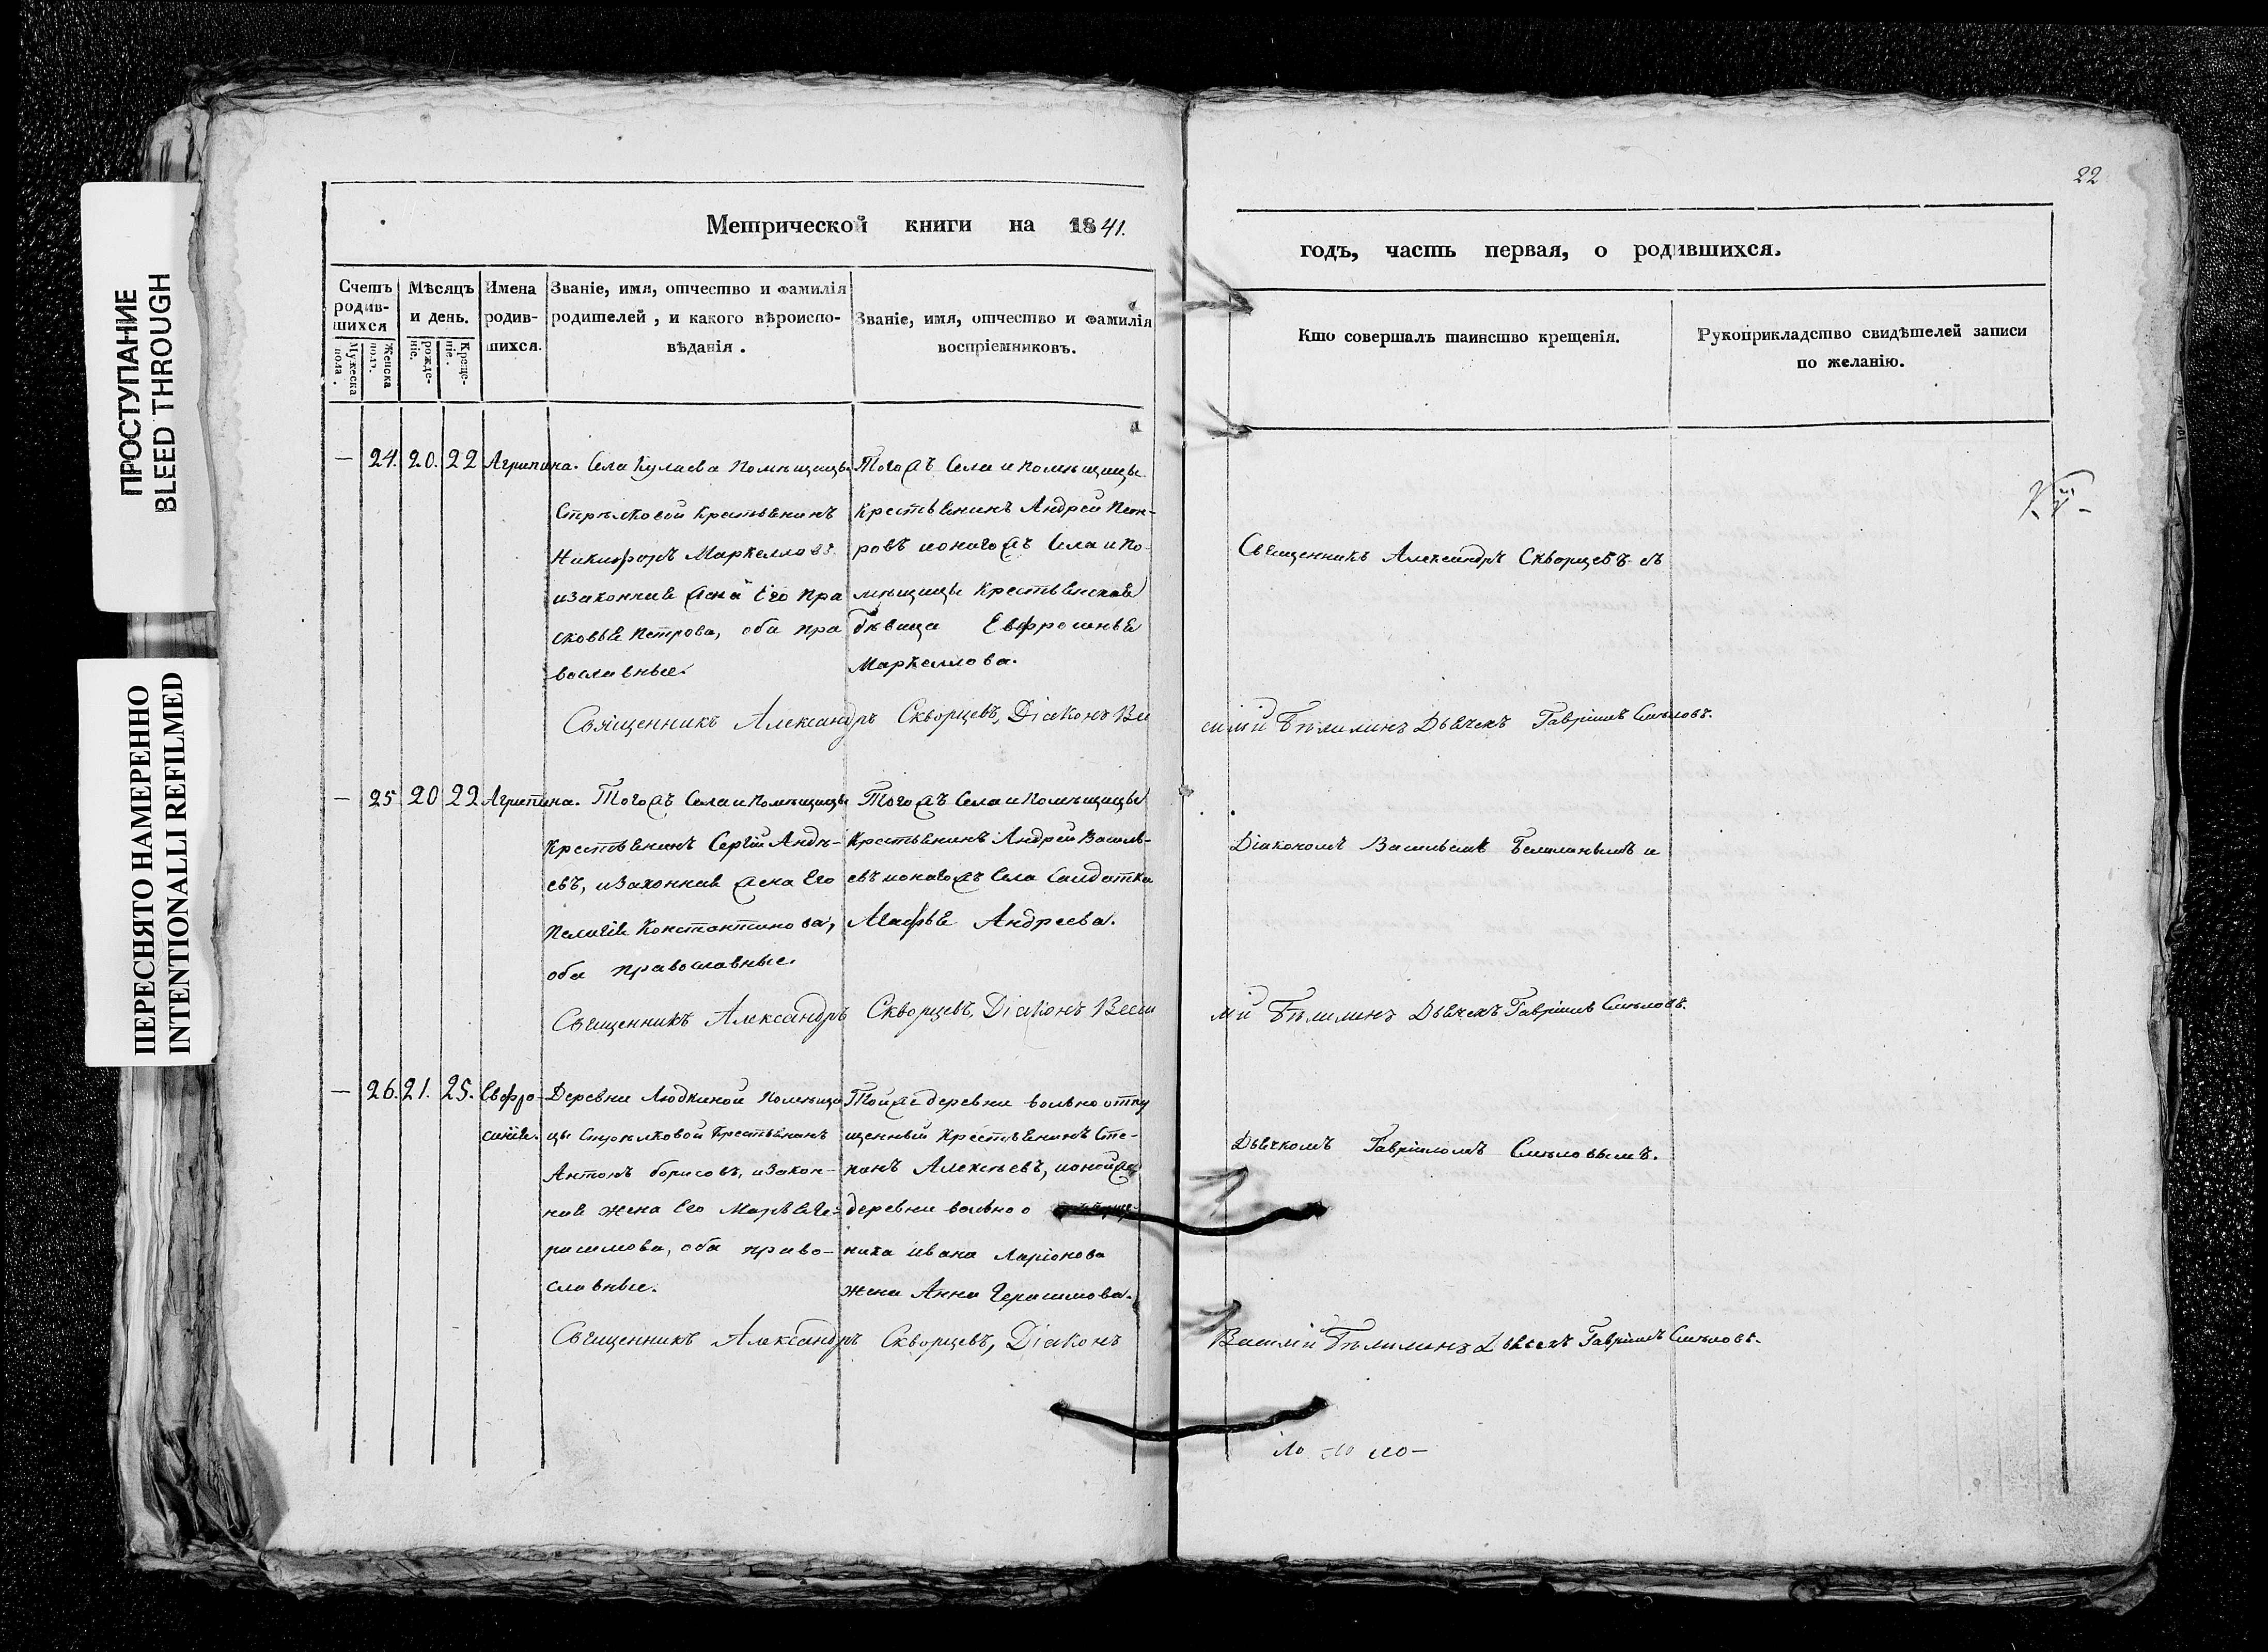 ПРОСТУПАНИЕ
BLEED THROUGH
ПЕРЕСНЯТО НАМЕРЕННО
INTENTIONALLI REFILMED
22
Метрической книги на 1841.
годъ, часть первая, о родившихся.
Счетъ родив-шихся
Мужеска пола.
Женска пола.
Мѣсяцъ и день.
рожде-ніе.
Креще-ніе.
Имена родив-шихся.
Званіе, имя, отчество и фамилія
родителей, и какого вѣроиспо-
вѣданія.
Званіе, имя, отчество и фамилія
воспріемниковъ.
Кто совершалъ таинство крещенія.
Рукоприкладство свидѣтелей записи
по желанію.
— 24. 20. 22 Агрипина.
Села Кулаева Помѣщицы
Стрѣлковой Крестьянинъ
Никифоръ Маркелловъ
и законная жена Его Пра
сковья Петрова, оба пра
вославные.
Тогожъ Села и Помѣщицы
Крестьянинъ Андрей Пет-
ровъ и онагожъ Села и По-
мѣщицы Крестьянская
дѣвица Евфросинья
Маркеллова.
Священникъ Александръ Скворцевъ съ
Священникъ Александръ Скворцевъ, Діаконъ Ва
силій Бѣлилинъ Дьячекъ Гавріилъ Смѣловъ.
— 25 20 22 Агрипина.
Тогожъ Села и Помѣщицы
Крестьянинъ Сергій Андрѣ-
евъ, и Законная жена Его
Пелагія Константинова,
оба православные.
Тогожъ Села и Помѣщицы
Крестьянинъ Андрей Василь-
евъ и онагожъ Села Салдатка
Марфья Андреева.
Діакономъ Васильемъ Белилинымъ и
Священникъ Александръ Скворцевъ, Діаконъ Васи
лій Бѣлилинъ Дьячекъ Гавріилъ Смѣловъ.
— 26. 21. 25. Евфро-
синія.
Деревни Людкиной Помѣщи
цы Стрѣлковой Крестьянинъ
Антонъ Борисовъ, и закон-
ная жена Его Марья Ге-
расимова, оба право-
славные.
Тойже деревни вольно отпу
щенный Крестьянинъ Сте-
панъ Алексѣевъ, и онойже
деревни вольно о
ника Ивана Ларіонова
жена Анна Герасимова.
Дьячкомъ Гавріиломъ Смѣловымъ.
Священникъ Александръ Скворцевъ, Діаконъ
Василій Бѣлилинъ Дьячекъ Гавріилъ Смѣловъ.